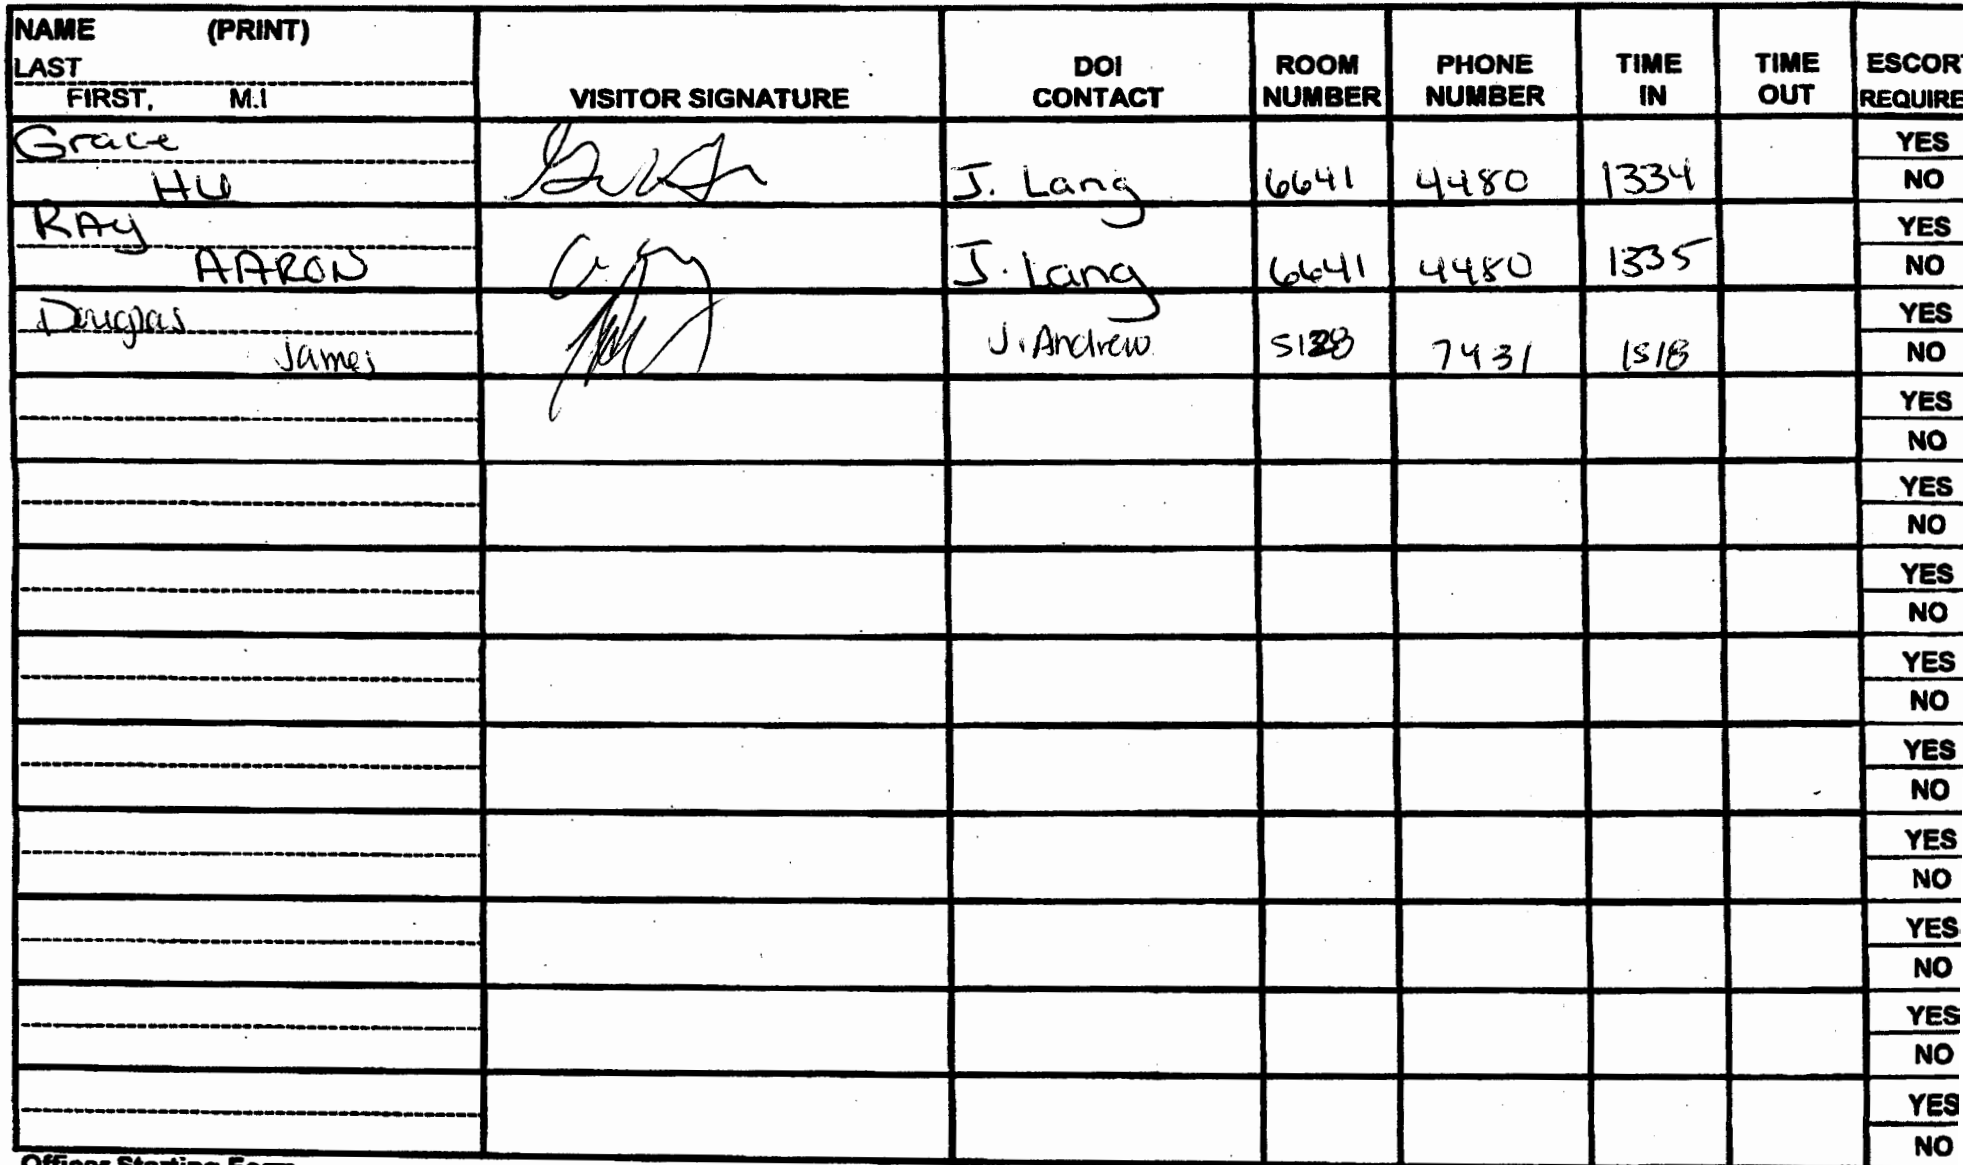 NAME (PRINT)
LAST
FIRST, M.I
VISITOR SIGNATURE
DOI
CONTACT
ROOM
NUMBER
PHONE
NUMBER
TIME
IN
TIME
OUT
ESCORT
REQUIRE
Grace
HU
J. Lang
6641
4480
1334
YES
NO
RAy
AARON
J. Lang
6641
4480
1335
YES
NO
Douglas
James
J. Andrew
5128
7431
1518
YES
NO
YES
NO
YES
NO
YES
NO
YES
NO
YES
NO
YES
NO
YES
NO
YES
NO
YES
NO
Officer Starting Form